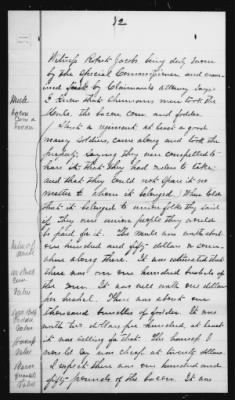 12
Witness Robert Jacobs being duly sworn
by the Special Commissioner and exam-
ined by Claimants attorney says
I know that Sherman's men took the
mule, the bacon corn and fodder.
I think a regiment at least a good
many soldiers, came along and took the
property, saying they were compelled to
have it, that they had orders to take
and that they could not spare it no
matter to whom it belonged. When told
that it belonged to union folks they said
if they were union people they would
be paid for it. The mule was worth about
one hundred and fifty dollars or some-
where along there. It was estimated that
there was over one hundred bushels of
the corn. It was well worth one dollar
per bushel. There was about one
thousand bundles of fodder. It was
worth two dollars per hundred, at least
it was selling for that. The harness I
would say was cheap at twenty dollars
I expect there was one hundred and
fifty pounds of the bacon. It was
Mule
bacon
Corn &
Value of
mule
Corn
Value
Fodder
Value
Value
Bacon
Value